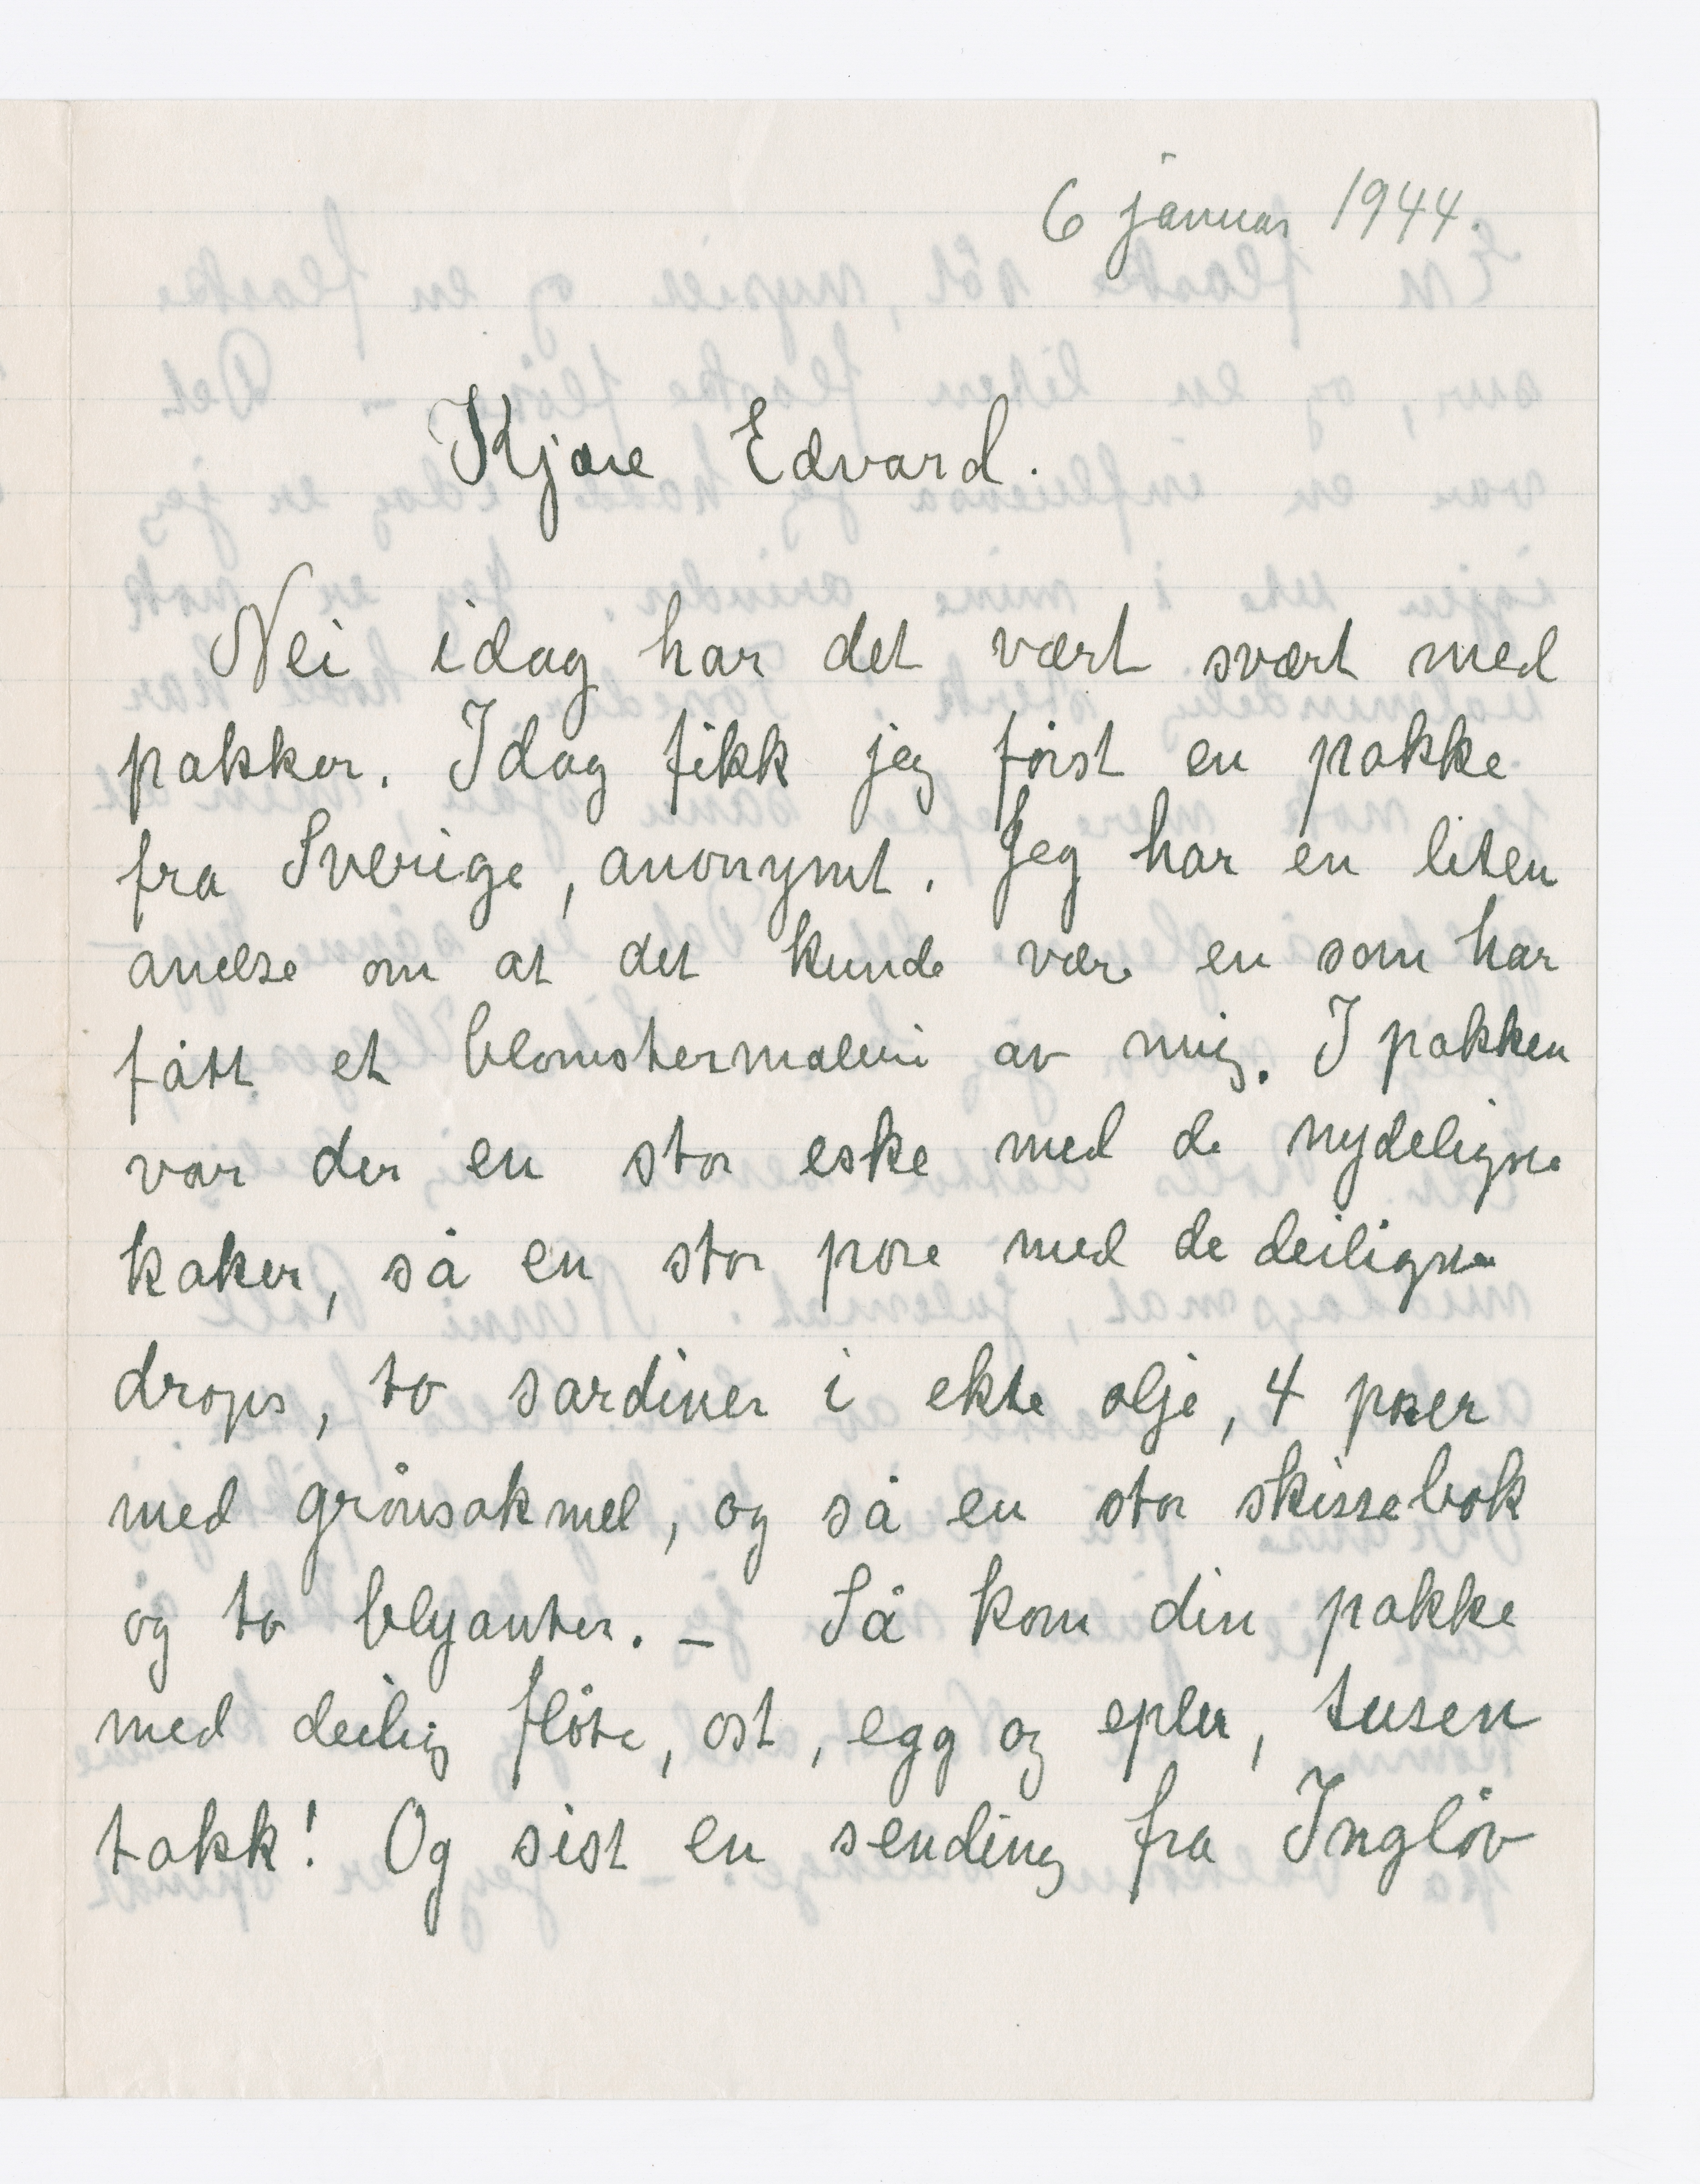 6 januar 1944.
Kjære Edvard.
Nei idag har det vært svært med
pakker. Idag fikk jeg først en pakke
fra Sverige, anonymt. Jeg har en liten
anelse om at det kunde være en som har
fått et blomstermaleri av mig. I pakken
var der en stor eske med de nydeligste
kaker, så en stor pose med de deiligste
drops, to sardiner i ekte olje, 4 poser
med grønsakmel, og så en stor skissebok
og to blyanter. — Så kom din pakke
med deilig fløte, ost, egg og epler, tusen
takk! Og sist en sending fra Ingløv